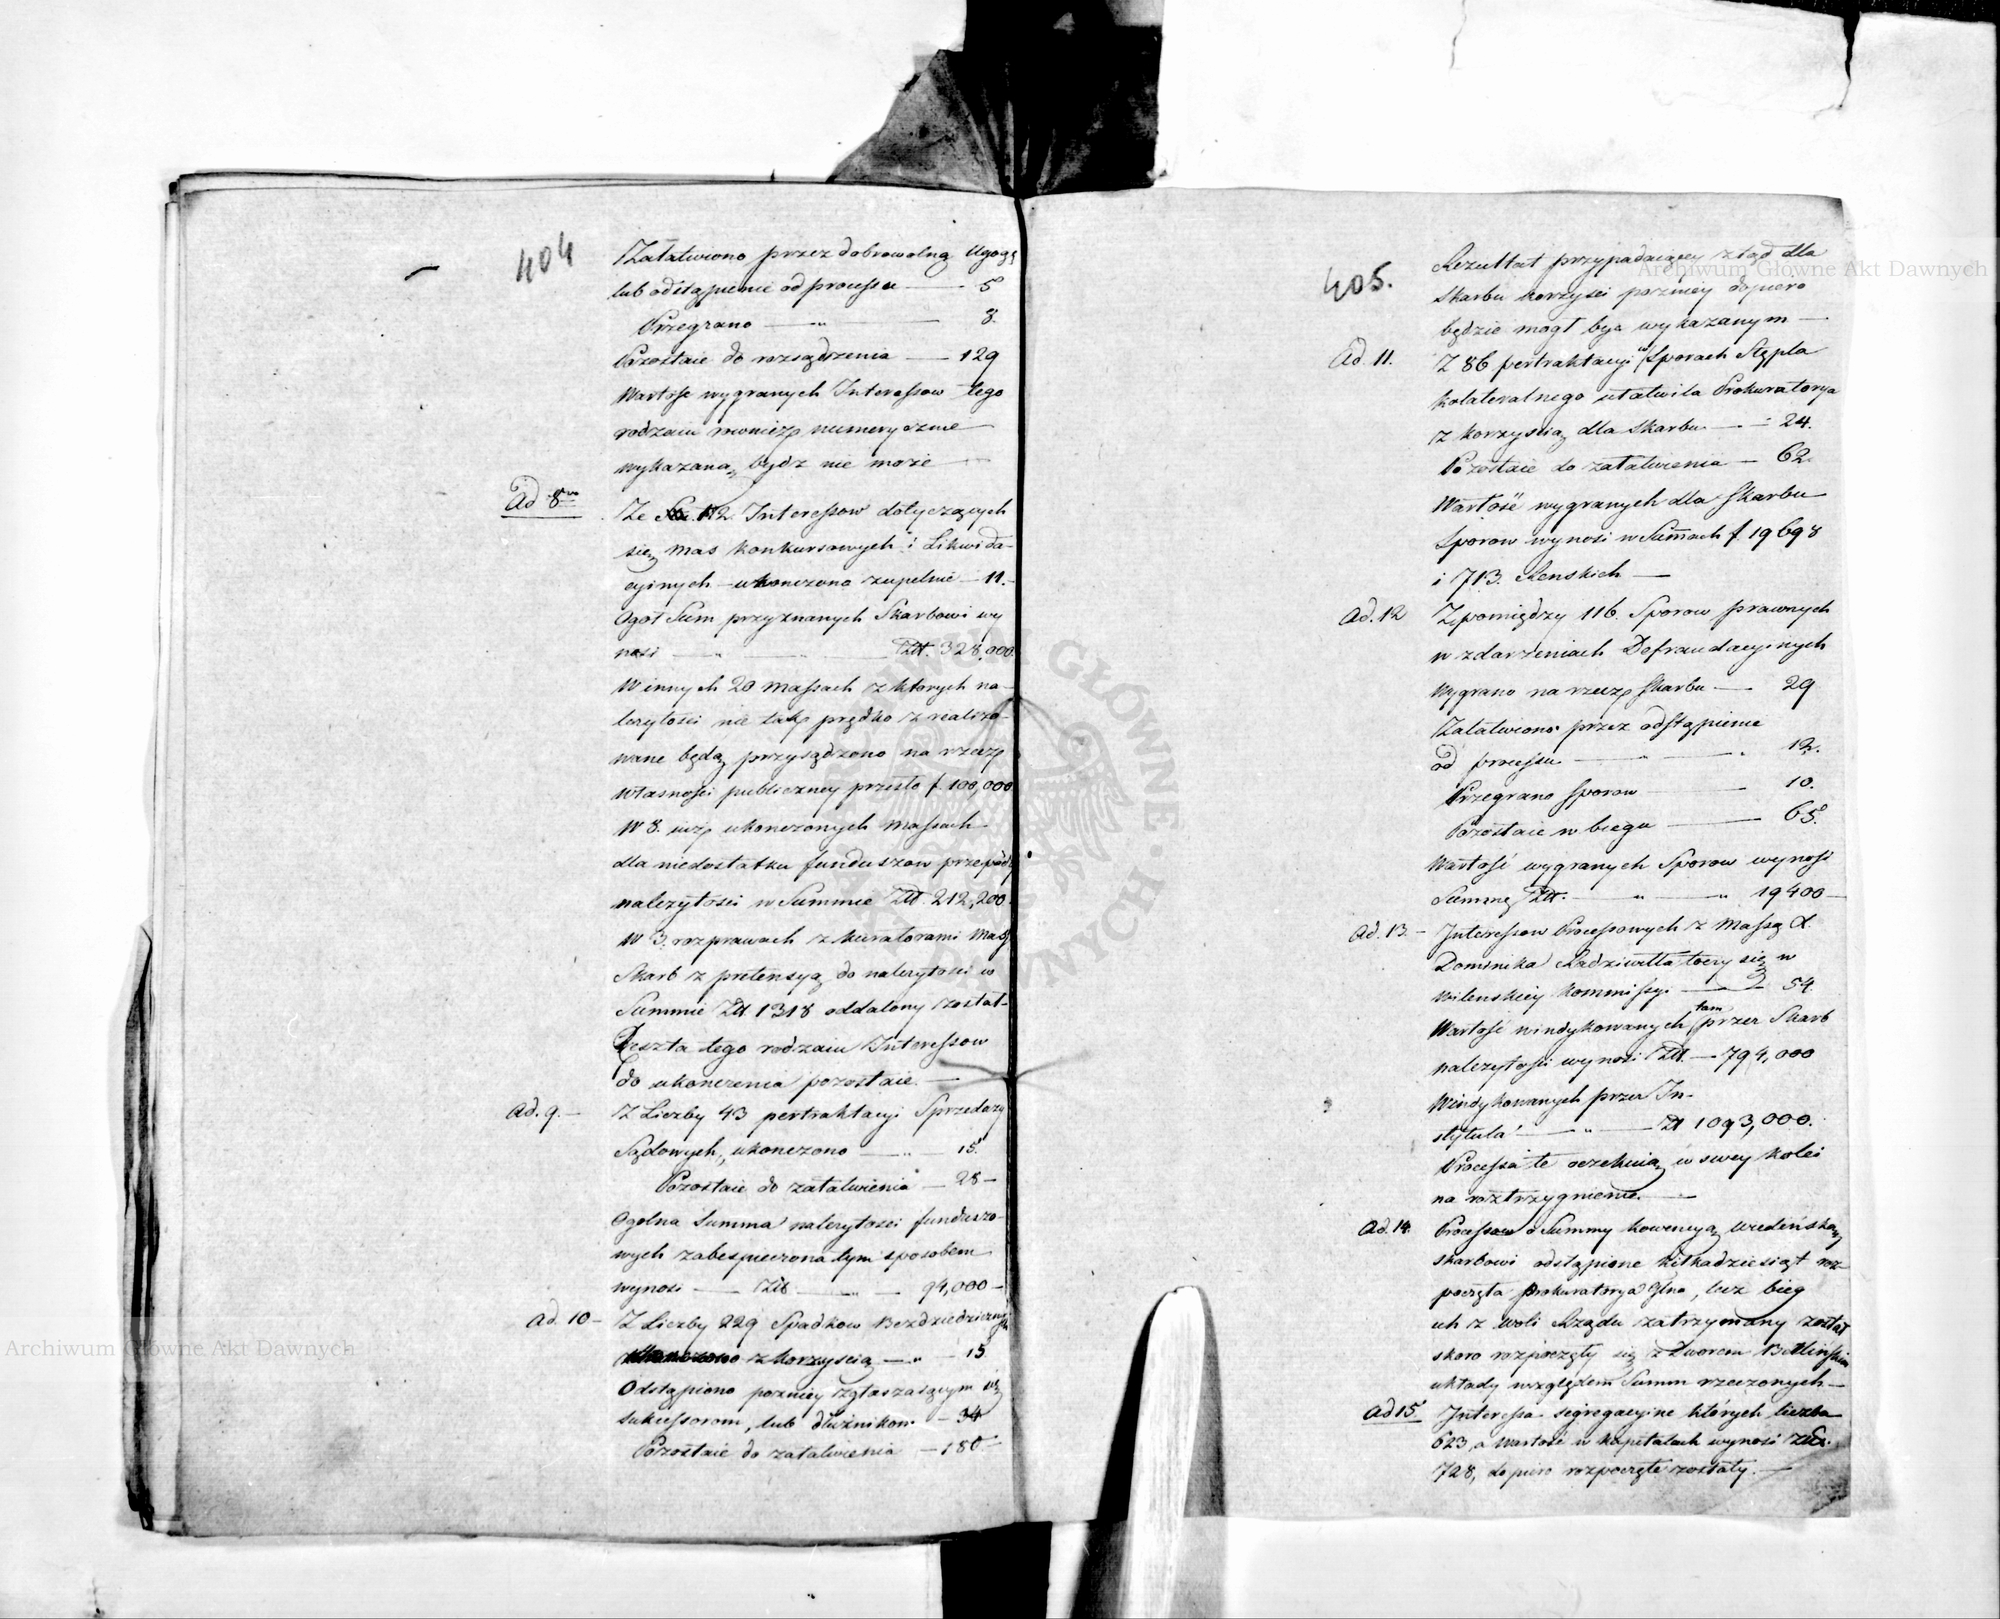 404
Załatwiono przez dobrowolną Ugodę
lub odstąpienie od processu — 5
Przegrano — „ — 8.
Pozostaie do rozsądzenia — 129
Wartość wygranych Interessow tego
rodzaiu rownież numerycznie
wykazaną bydź nie może —
Ad 8vo
Ze 112 Interessow dotyczących
się mas konkursowych i Likwida-
cyinych — ukonczono zupełnie — 11. —
Ogoł Sum przyznanych Skarbowi wy
nosi — „ — „ — Złt. 328,000.
W innych 20 massach z ktorych na-
leżytości nie tak prędko zrealizo-
wane będą przysądzono na rzecz
własności publiczney przeszło f. 100,000
W 8. iuż ukonczonych massach
dla niedostatku funduszow przepadły
należytości w Summie Złt. 212,200.
W 3. rozprawach z kuratorami mass
Skarb z pretensyą do należytości w
Summie Złt 1318 oddalony został —
Reszta tego rodzaiu Interessow
do ukonczenia pozostaie. —
Ad. 9. —
Z Liczby 43 pertraktacyi Sprzedaży
Sądowych, ukonczono — „ — 15.
Pozostaie do załatwienia — 28 —
Ogolna Summa należytości funduszo-
wych zabespieczona tym sposobem
wynosi — Złt — „ — 94,000 —
Ad. 10 —
Z Liczby 229 Spadkow Bezdziedzicznych
z korzyscią — „ — 15
Odstąpiono pozniey zgłaszaiącym się
sukcessorom, lub dłużnikom — 34
Pozostaie do załatwienia — 180 —
405.
Rezultat przypadaiącey ztąd dla
Skarbu korzyści pozniey dopiero
będzie mogł być wykazanym —
Ad. 11.
Z 86 pertraktacyi w Sporach Stępla
kolateralnego utatwiła Prokuratorya
z korzyscią dla Skarbu — 24.
Pozostaie do załatwienia — 62.
Wartość wygranych dla Skarbu
Sporow wynosi w Sumach f. 19698
i 713. Renskich —
Ad. 12
Zpomiędzy 116. Sporow prawnych
w zdarzeniach Defraudacyinych
wygrano na rzecz Skarbu — 29
Załatwiono przez odstąpienie
od processu — „ — „ 12.
Przegrano Sporow — 10.
Pozostaie w biegu — 65.
Wartość wygranych Sporow wynosi
Summę Złt. — „ — „ 19400 —
Ad. 13. —
Interessow Processowych z Massą X.
Dominika Radziwiłła toczy się w
Wilenskiey kommissyi — 54.
Wartość windykowanych tam przez Skarb
należytości wynosi Złt. — 794,000
Windykowanych przez In-
stytuta — „ — Zł 1093,000.
Processa te oczekuią w swey kolei
na roztrzygnienie. —
Ad. 14.
Processow o Summy konwencyą wiedeńską
skarbowi odstąpione kilkadziesiąt roz-
poczęła Prokuratorya Glna, lecz bieg
ich z woli Rządu zatrzymany został
skoro rozpoczęły się z Dworem Berlińskim
układy względem Summ rzeczonych —
Ad 15
Interessa segregacyine których liczba
623, a Wartość w kapitałach wynosi
728, dopiero rozpoczęte zostały. —
Archiwum Główne Akt Dawnych
Archiwum Główne Akt Dawnych